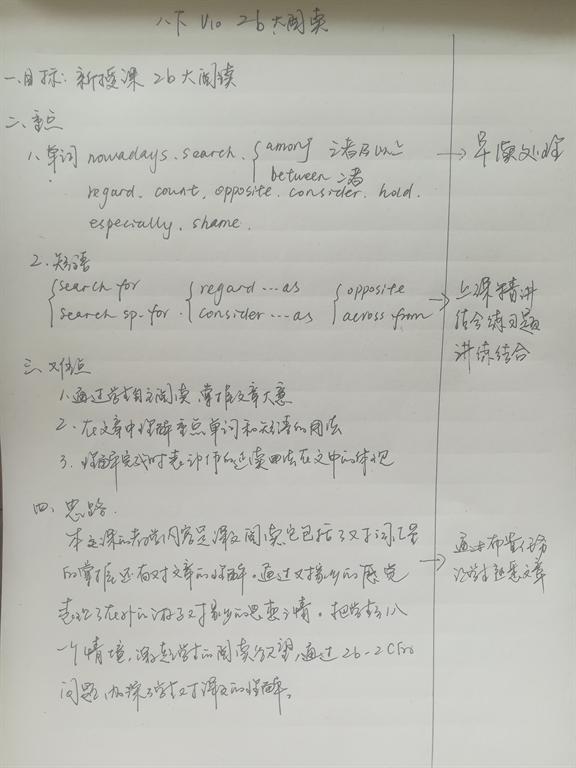 八下 U10 2b大阅读
一、目标: 新授课 2b大阅读
二、重点
1、单词 nowadays. search. { among 三者及以上 → 早读处理
between 二者
regard. count. opposite. consider. hold.
especially. shame.
2. 短语
{ search for { regard ... as { opposite → 上课精讲
search sp. for. consider ... as across from 结合练习题
讲练结合
三、难点
1、通过学生自主阅读, 掌握文章大意
2、在文章中理解重点单词和短语的用法
3、理解完成时表动作的延续用法在文中的体现
四、思路.
本节课的教学内容是课文阅读它包括了对词汇量
的掌握还有对文章的理解。通过对家乡的感觉 → 通过布置任务
让学生熟悉文章
表达了在外的游子对家乡的思想之情。把学生引入
一个情境, 激起学生的阅读欲望, 通过 2b-2c的
问题, 加深学生对课文的理解。